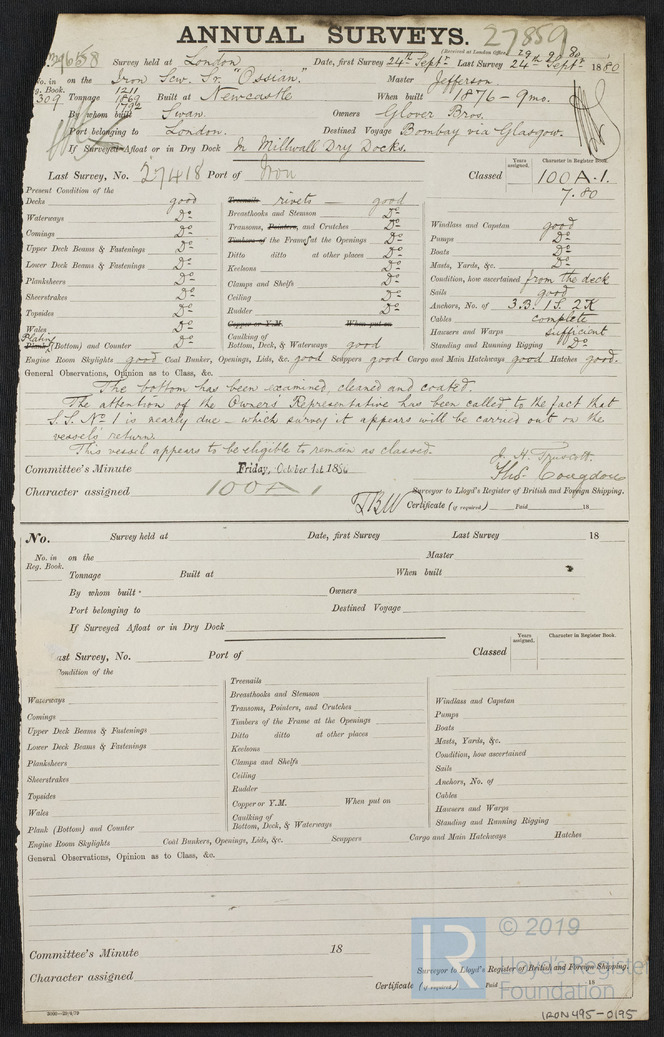 ANNUAL SURVEYS. 27859
(Received at London Office 29. 9. 80
Survey held at London Date, first Survey 24th Septr Last Survey 24th Septr 1880
No. in on the Iron Scw. Sr. "Ossian." Master Jefferson
g. Book. 1211
309 Tonnage 1869 Built at Newcastle When built 1876 - 9mo.
1792
By whom built Swan. Owners Glover Bros.
Port belonging to London. Destined Voyage Bombay via Glasgow.
If Surveyed Afloat or in Dry Dock In Millwall Dry Docks.
Years assigned. Character in Register Book.
Last Survey, No. 27418 Port of Iron Classed 100 A.1.
7.80
Present Condition of the
Decks good
Waterways Do
Comings Do
Upper Deck Beams & Fastenings Do
Lower Deck Beams & Fastenings Do
Planksheers Do
Sheerstrakes Do
Topsides Do
Wales Do
Plating
Plank (Bottom) and Counter Do
Treenails rivets — good
Breasthooks and Stemson Do
Transoms, Pointers, and Crutches Do
Timbers of the Frame at the Openings Do
Ditto ditto at other places Do
Keelsons Do
Clamps and Shelfs Do
Ceiling Do
Rudder Do
Copper or Y.M. When put on
Caulking of
Bottom, Deck, & Waterways good
Windlass and Capstan good
Pumps Do
Boats Do
Masts, Yards, &c. Do
Condition, how ascertained from the deck
Sails good
Anchors, No. of 3.B. 1S. 2K
Cables complete
Hawsers and Warps sufficient
Standing and Running Rigging Do
Engine Room Skylights good Coal Bunker, Openings, Lids, &c. good Scuppers good Cargo and Main Hatchways good Hatches good.
General Observations, Opinion as to Class, &c.
The bottom has been examined cleaned and coated.
The attention of the Owners' Representative has been called to the fact that
S.S. No 1 is nearly due - which survey it appears will be carried out on the
vessel's return.
This vessel appears to be eligible to remain as classed.
J. H. Truscott.
Committee's Minute Friday, October 1st 1880
Thos. Congdon
Character assigned 100 A 1
Surveyor to Lloyd's Register of British and Foreign Shipping.
Certificate (if required) Paid 18
No. Survey held at Date, first Survey Last Survey 18
No. in on the Master
Reg. Book.
Tonnage Built at When built
By whom built Owners
Port belonging to Destined Voyage
If Surveyed Afloat or in Dry Dock
Years assigned. Character in Register Book.
ast Survey, No. Port of Classed
Condition of the
Waterways
Comings
Upper Deck Beams & Fastenings
Lower Deck Beams & Fastenings
Planksheers
Sheerstrakes
Topsides
Wales
Plank (Bottom) and Counter
Treenails
Breasthooks and Stemson
Transoms, Pointers, and Crutches
Timbers of the Frame at the Openings
Ditto ditto at other places
Keelsons
Clamps and Shelfs
Ceiling
Rudder
Copper or Y.M. When put on
Caulking of
Bottom, Deck, & Waterways
Windlass and Capstan
Pumps
Boats
Masts, Yards, &c.
Condition, how ascertained
Sails
Anchors, No. of
Cables
Hawsers and Warps
Standing and Running Rigging
Engine Room Skylights Coal Bunkers, Openings, Lids, &c. Scuppers Cargo and Main Hatchways Hatches
General Observations, Opinion as to Class, &c.
Committee's Minute 18
Surveyor to Lloyd's Register of British and Foreign Shipping.
Character assigned
Certificate (if required) Paid 18
LR © 2019
Lloyd's Register
Foundation
IRON495-0195